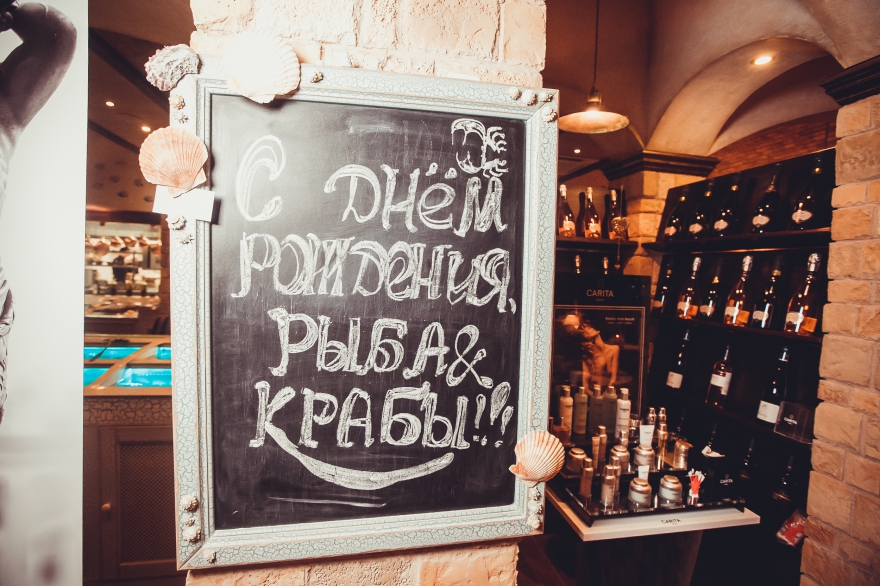 С ДНЁМ
РОЖДЕНИЯ,
РЫБА &
КРАБЫ!!!
CARITA
CARITA